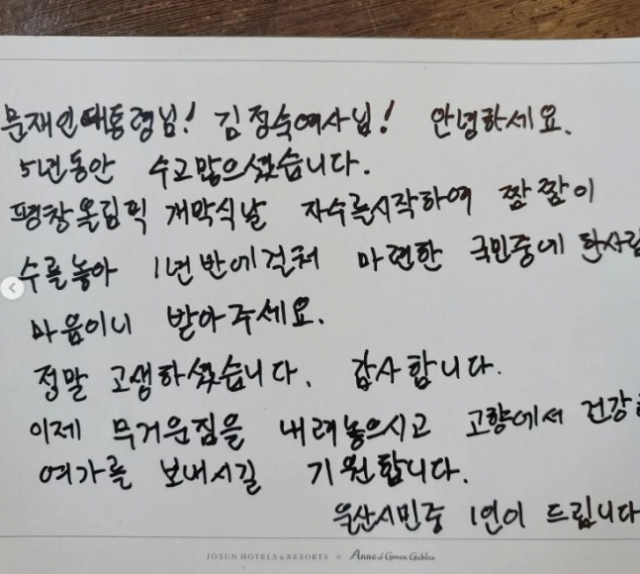 문재인대통령님! 김정숙여사님! 안녕하세요.
5년동안 수고많으셨습니다.
평창올림픽 개막식날 자수를시작하여 짬짬이
수를놓아 1년반에걸쳐 마련한 국민중에 한사람
마음이니 받아주세요.
정말 고생하셨습니다. 감사합니다.
이제 무거운짐을 내려놓으시고 고향에서 건강
여가를 보내시길 기원합니다.
울산시민중 1인이 드립니다
JOSUN HOTELS & RESORTS × Anne of Green Gables